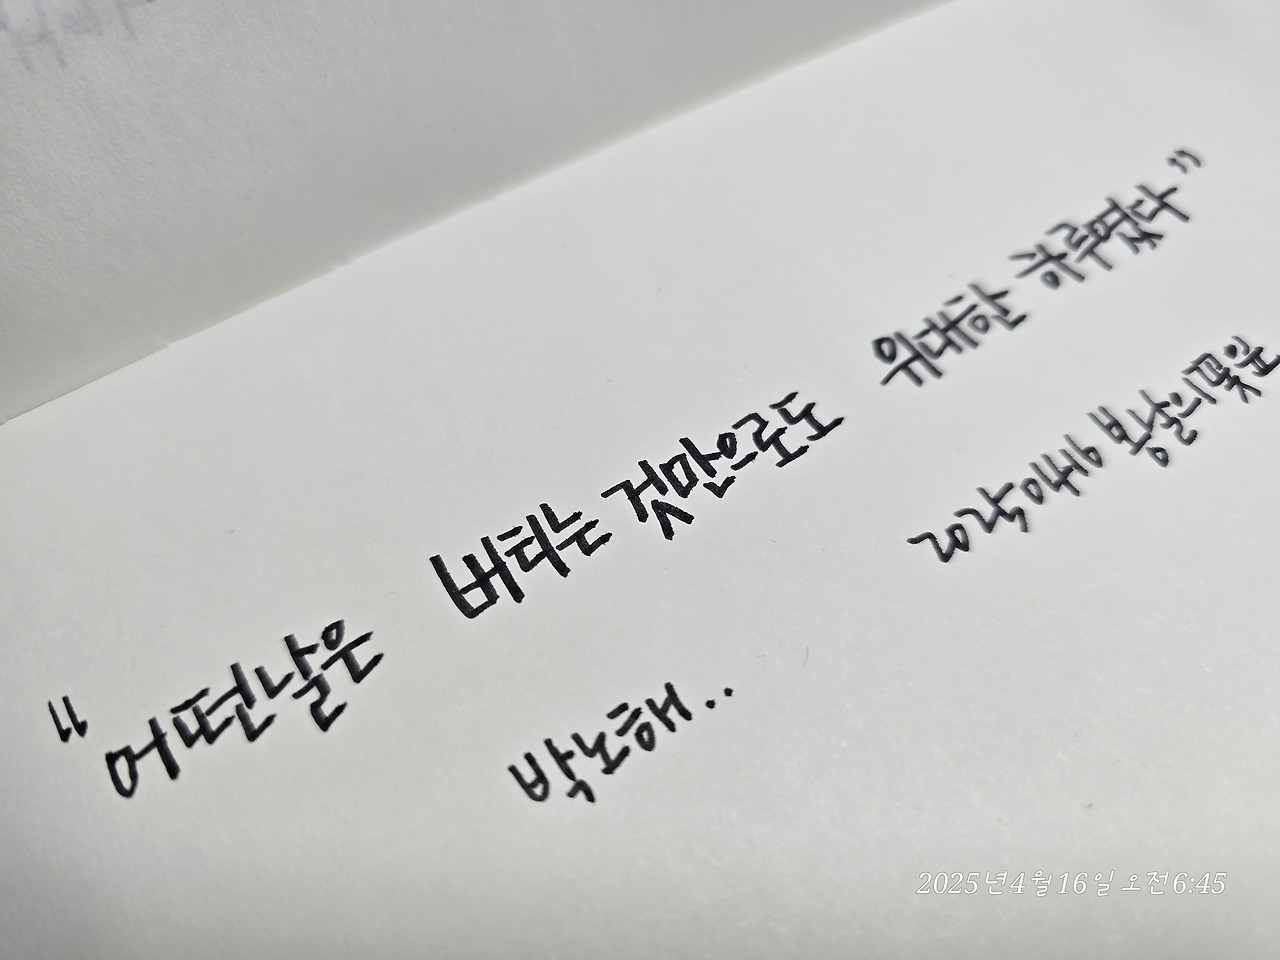 "어떤 날은 버티는 것만으로도 위대한 하루였다"
박노해..
20250416 봄날의 꽃잎
2025년 4월 16일 오전 6:45